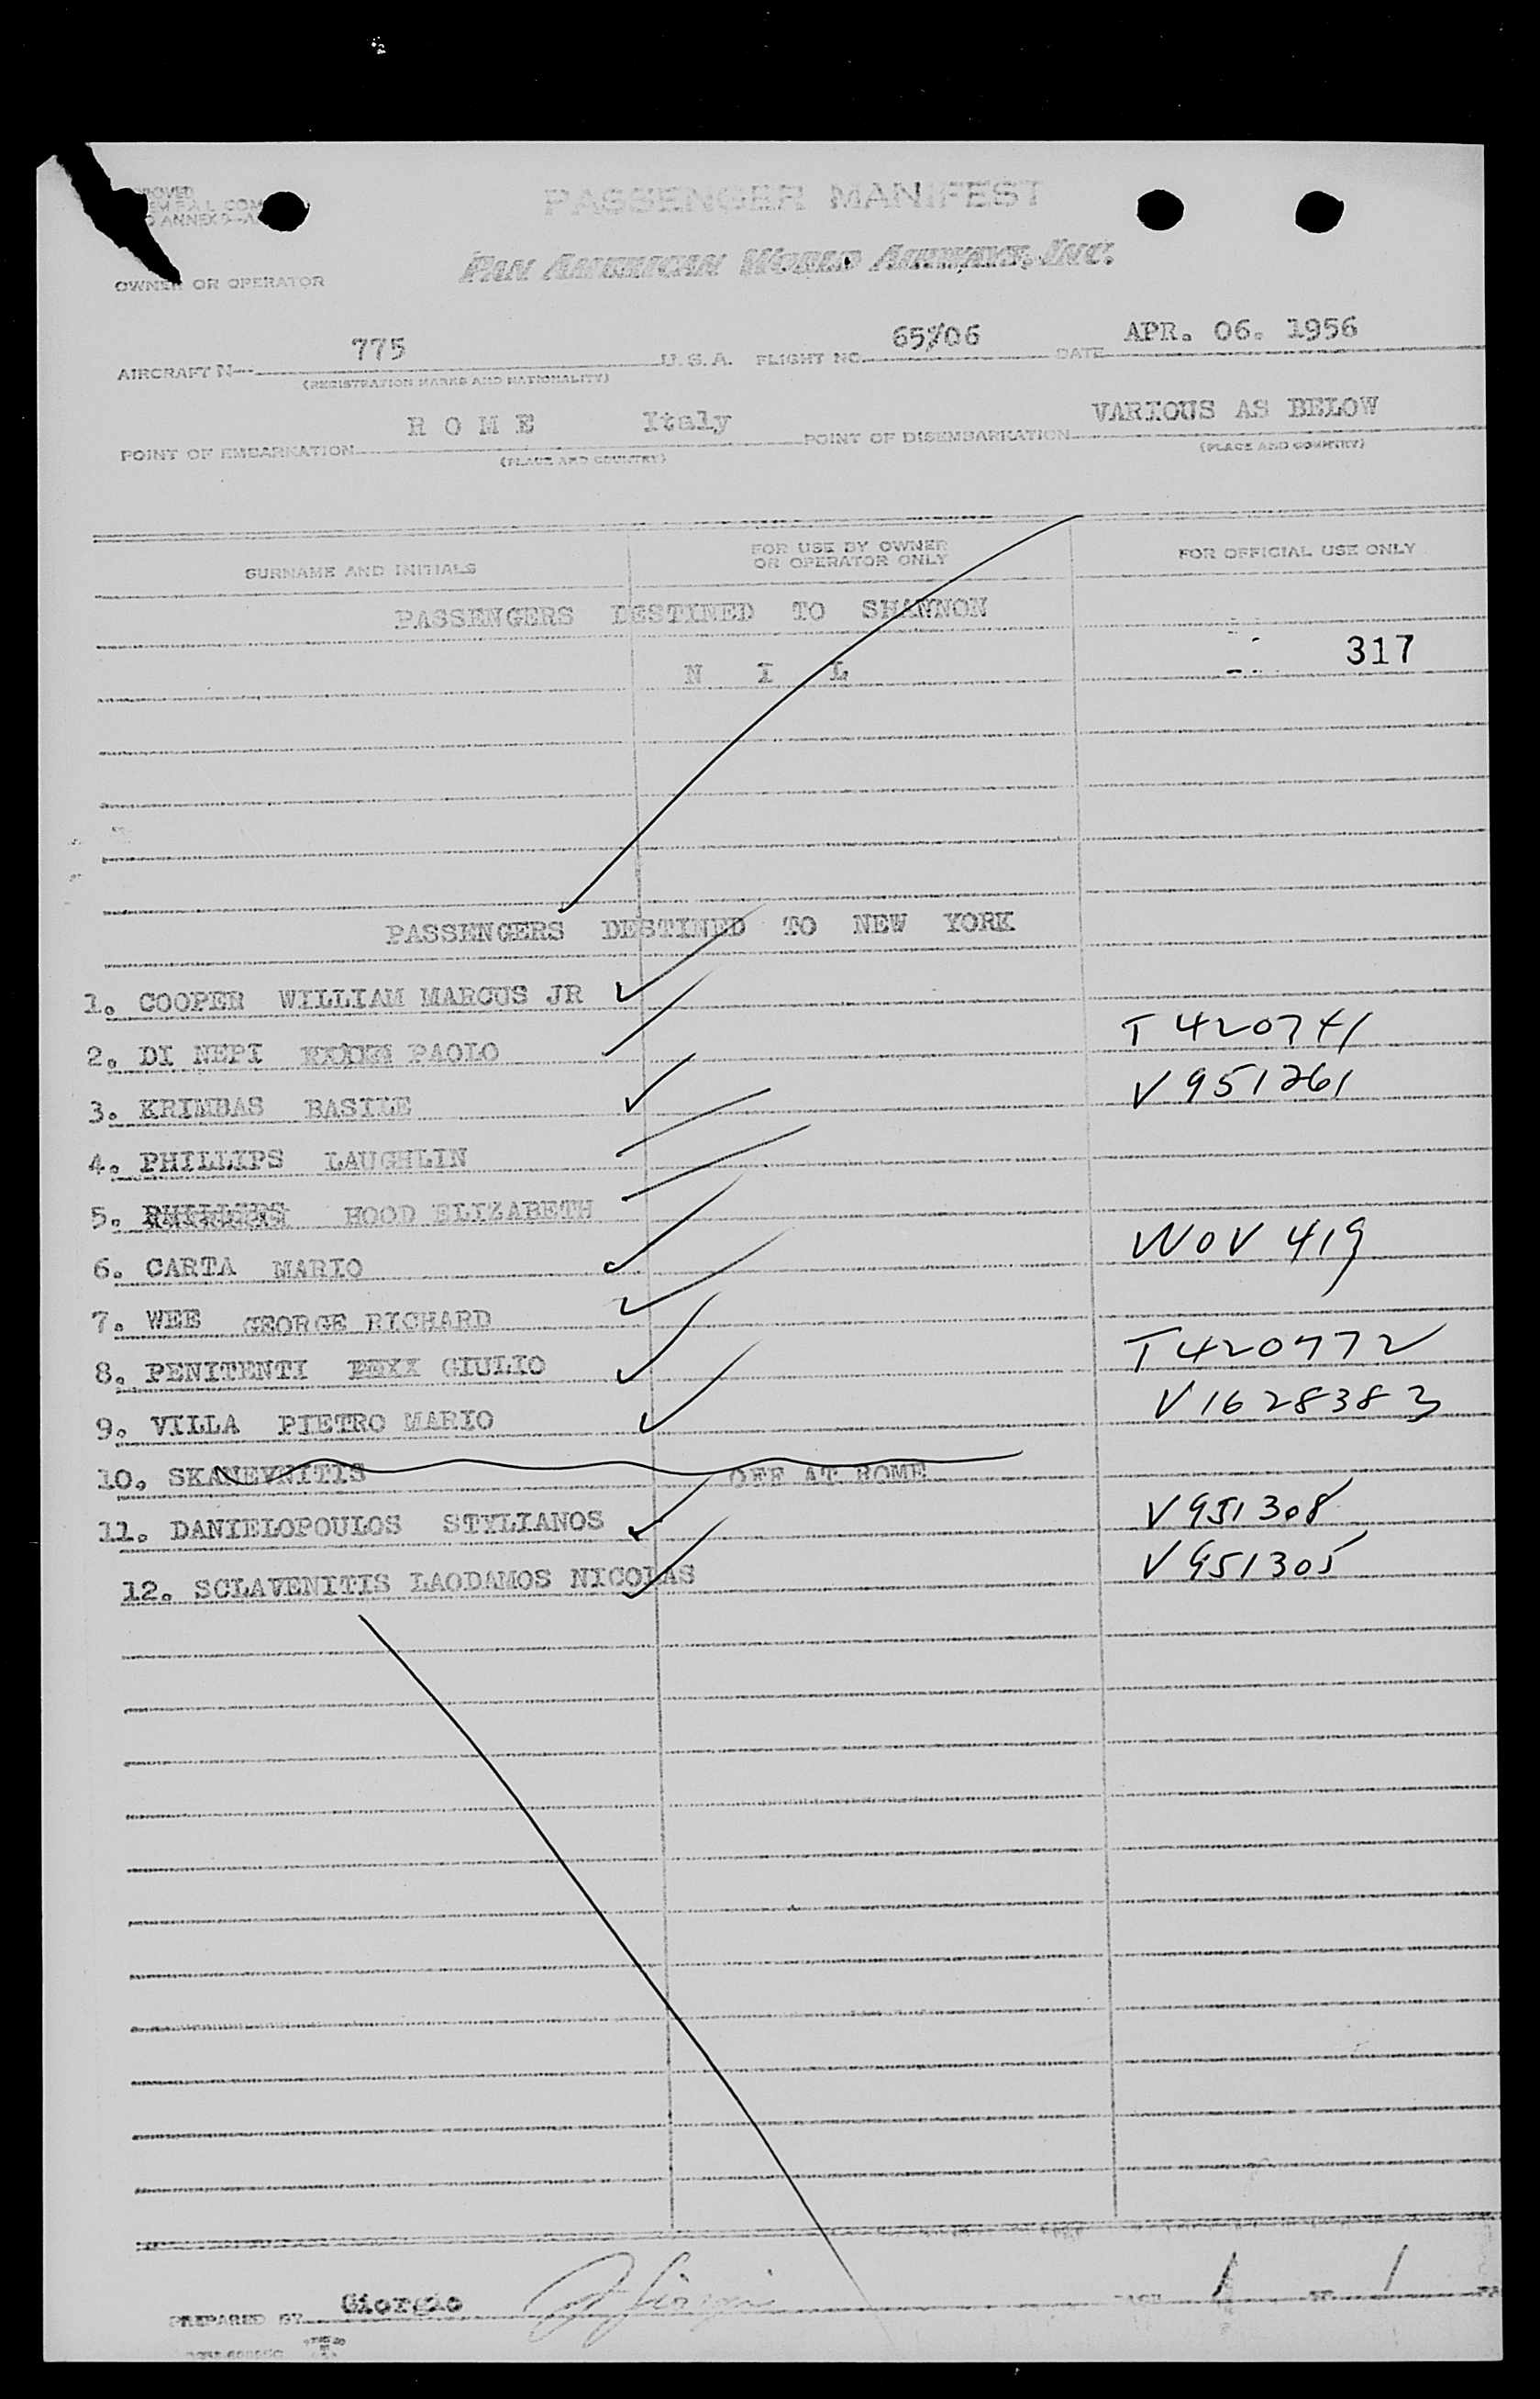 PASSENGER MANIFEST
PAN AMERICAN WORLD AIRWAYS, INC.
OWNER OR OPERATOR
AIRCRAFT N 775 U.S.A. FLIGHT NO. 65/06 DATE APR. 06. 1956
(REGISTRATION MARKS AND NATIONALITY)
POINT OF EMBARKATION R O M E Italy POINT OF DISEMBARKATION VARIOUS AS BELOW
(PLACE AND COUNTRY) (PLACE AND COUNTRY)
SURNAME AND INITIALS FOR USE BY OWNER OR OPERATOR ONLY FOR OFFICIAL USE ONLY
PASSENGERS DESTINED TO SHANNON
N I L 317
PASSENGERS DESTINED TO NEW YORK
1. COOPER WILLIAM MARCUS JR
2. DI NEPI PAOLO T 420741
3. KRIMBAS BASILE V 951261
4. PHILLIPS LAUGHLIN
5. PHILLIPS HOOD ELIZABETH
6. CARTA MARIO WOV 419
7. WEE GEORGE RICHARD
8. PENITENTI GIULIO T420772
9. VILLA PIETRO MARIO V1628383
10. SKANEVNITIS OFF AT ROME
11. DANIELOPOULOS STYLIANOS V951308
12. SCLAVENITIS LAODAMOS NICOLAS V951305
PREPARED BY Giorgio PAGE 1 OF 1